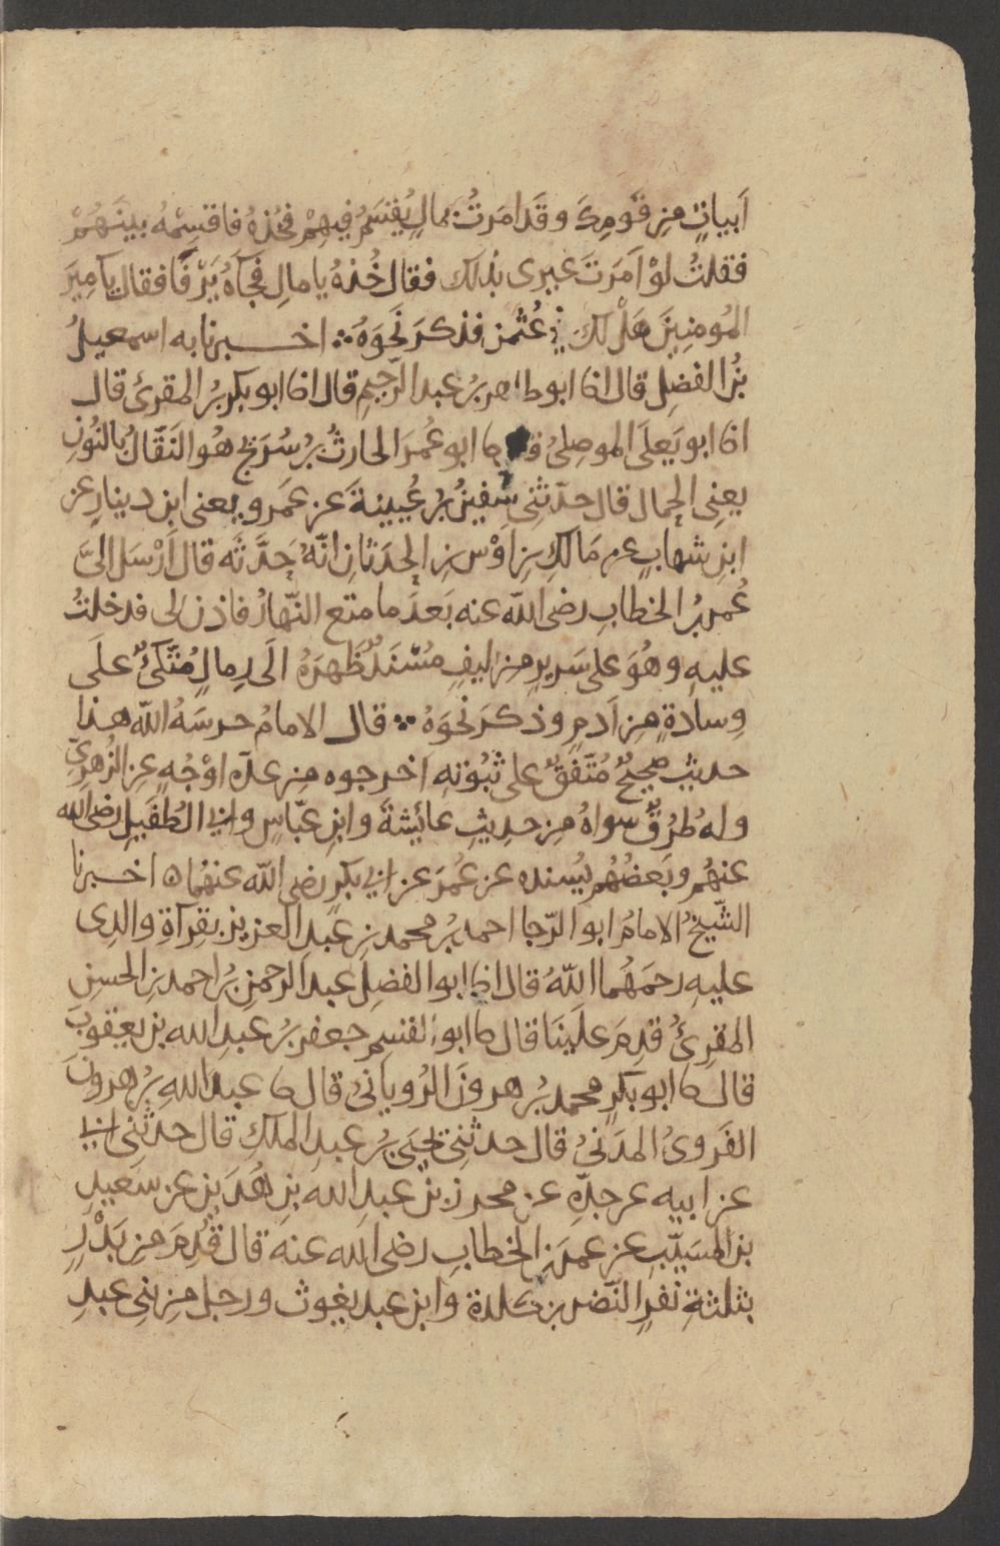 اَبياتٍ من قَومِكَ وقَد امَرتُ بمالٍ يُقتَسَمُ فيهِمْ فخُذهُ فاقسِمْهُ بينَهُمْ
فقلتُ لوْ اَمَرتَ غيرى بذلك فقال خُذهُ يا مالِ فجآهُ يَرْفَا فقال يآمِيرَ
المُومنِينَ هَلْ لك في عُثمن فذكرَ نَحوَهُ ∴ اخــبرنا به اسمعيلُ
بنُ الفضلِ قال انا ابو طاهر بنُ عبد الرّحيمِ قال انا ابو بكر بنُ المقرئُ قال
انا ابو يَعلَى الموصِلىُ ابو عُمَرَ الحارثُ بنُ سُرَيجٍ هُوَ النَقّالُ بالنُونِ
يعنى الجمال قال حدّثنِى سُفينُ بنُ عُيينةَ عن عَمرو يعنى ابن دينارٍ عن
ابنِ شهابٍ عن مَالكِ بنِ اَوْسِ بنِ الحدَثانِ انّهُ حَدَّثَه قال اَرْسَل الىَّ
عُمر بنُ الخطابِ رضى الله عنه بَعدَ ما متع النّهارُ فاذن لى فدخلتُ
عليهِ وهُوَ على سَريرٍ من ليفٍ مُسْنَدٌ ظَهرَهُ الَى رِمالٍ مُتّكىٌ علَى
وِسادةٍ من اَدمٍ وذكرَ نحوَهُ ∴ قال الامامُ حرسَهُ اللّه هذا
حديثٌ صحيحٌ مُتّفَقٌ على ثُبُوتهِ اخرجوه من عدّة اوْجُهٍ عن الزُهرىِّ
ولهُ طُرُقٌ سواهُ من حديثِ عائشةَ وابنِ عبّاسٍ وابي الطُفَيلِ رضى الله
عنهُم وبَعضُهُم يُسنده عن عُمرَ عن ابي بكرٍ رضى اللّه عنهُما ه اخــبرنا
الشّيخُ الامامُ ابو الرّجا احمد بنُ محمد بنِ عبدِ العزيز بقِرآةِ والدِى
عليهِ رحمَهُما اللّهُ قال انا ابو الفضل عبد الرحمن بنُ احمد بنِ الحسنِ
المقرِئُ قدِمَ علَينَا قال ابو القسِمِ جعفر بنُ عبدِ الله بنِ يعقوبَ
قال ابو بكرٍ محمد بنُ هرونَ الرُويانىُ قال عبد اللهِ بنُ هرونَ
الفَروىُ المدَنىُ قال حدثنِى يحيَى بنُ عبد الملكِ قال حدثنِى ابي
عن ابيه عن جدّهِ عن محرز بنِ عبدِ الله بنِ هُدَيرٍ عن سَعيدِ
بن المُسَيّبِ عن عمرَ بنِ الخطابِ رضى الله عنه قال قُدِمَ من بَدْرٍ
بثلثةِ نفرٍ النّضر بن كلدة وابن عبد يغوث ورجل من بنى عبدِ